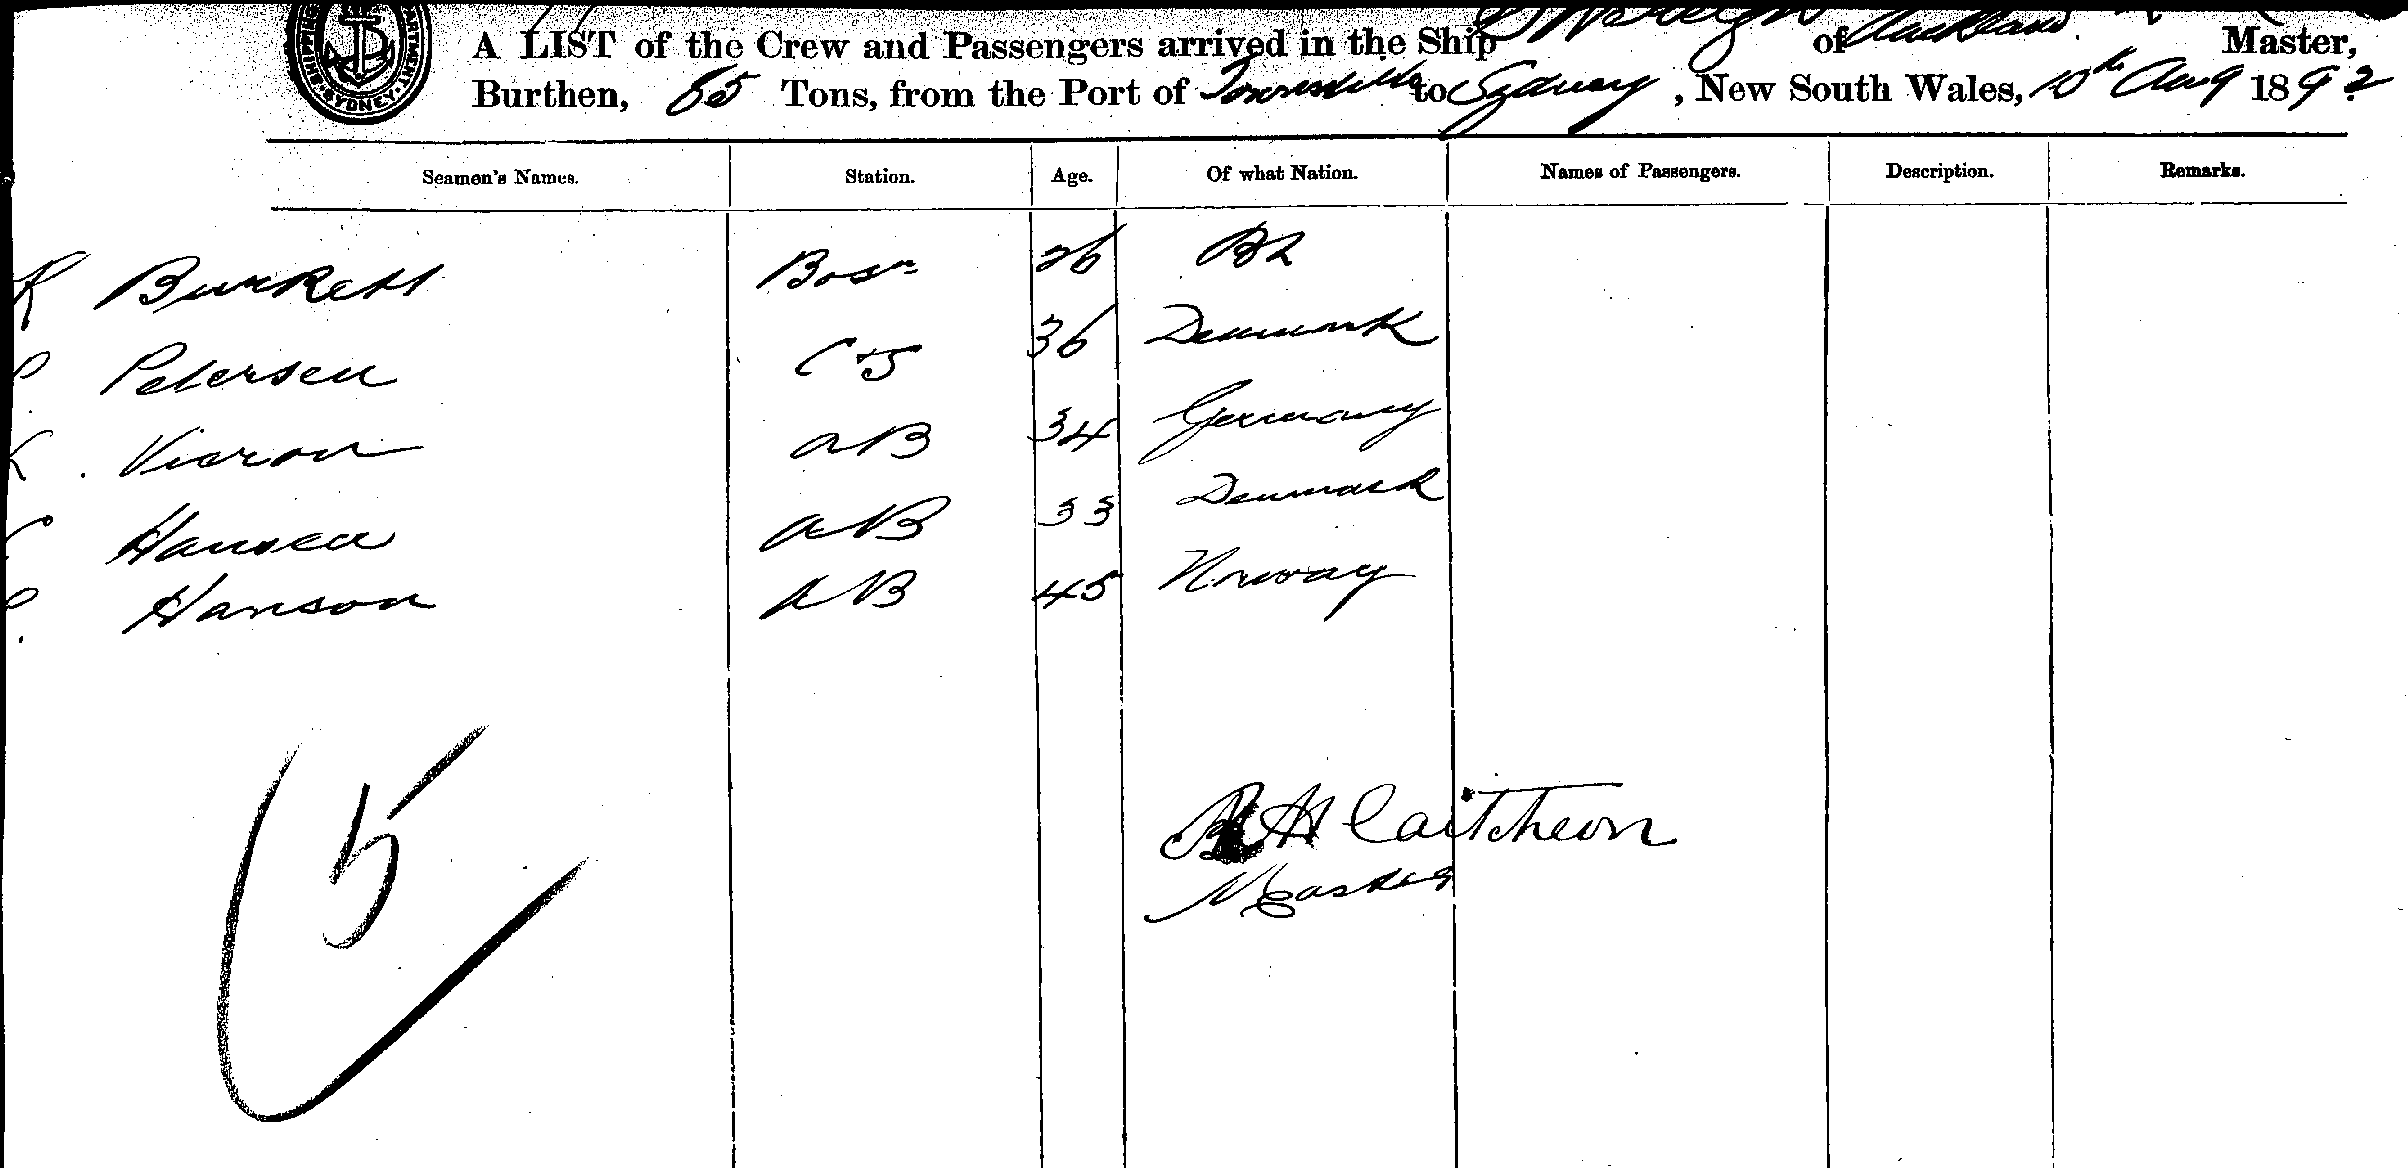 A LIST of the Crew and Passengers arrived in the Ship of Auckland Master,
Burthen, 65 Tons, from the Port of Townsville to Sydney, New South Wales, 10th Aug 1892
Seamen's Names. Station. Age. Of what Nation. Names of Passengers. Description. Remarks.
R Burkett Bosn 26 BR
P Petersen C & S 36 Denmark
K. Vieron AB 34 Germany
C Hansen AB 33 Denmark
P. Hanson AB 45 Norway
5
H Caitcheon
Master